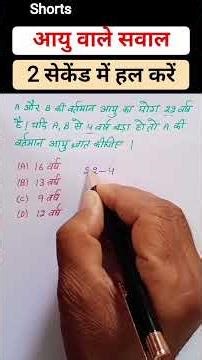 Shorts
आयु वाले सवाल
2 सेकेंड में हल करें
A और B की वर्तमान आयु का योग 23 वर्ष
है। यदि A, B से 4 वर्ष बड़ा हो तो A की
वर्तमान आयु ज्ञात कीजिए।
(A) 16 वर्ष
(B) 13 वर्ष
(C) 9 वर्ष
(D) 12 वर्ष